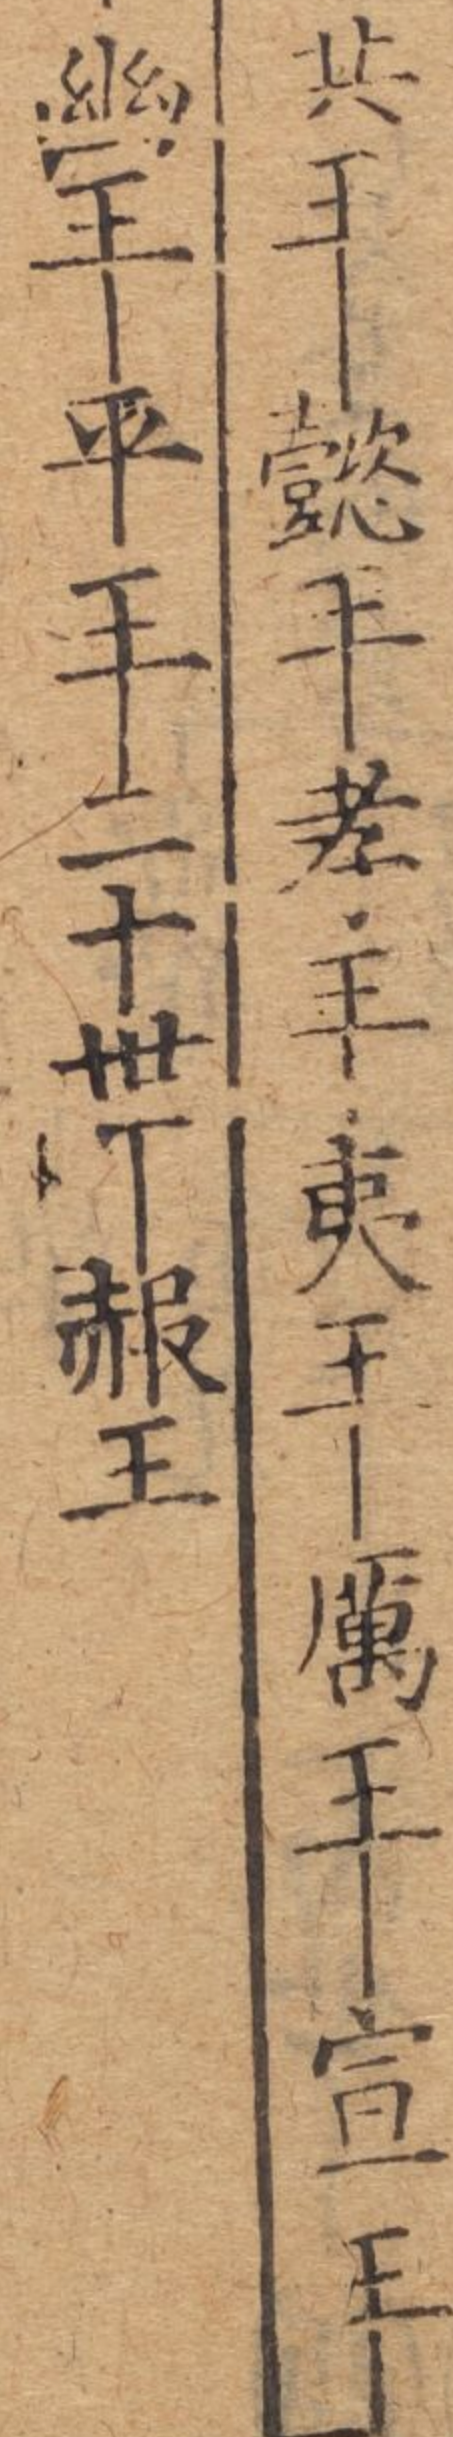 共王懿王孝王夷王厲王宣王
幽王平王二十世丁赧王